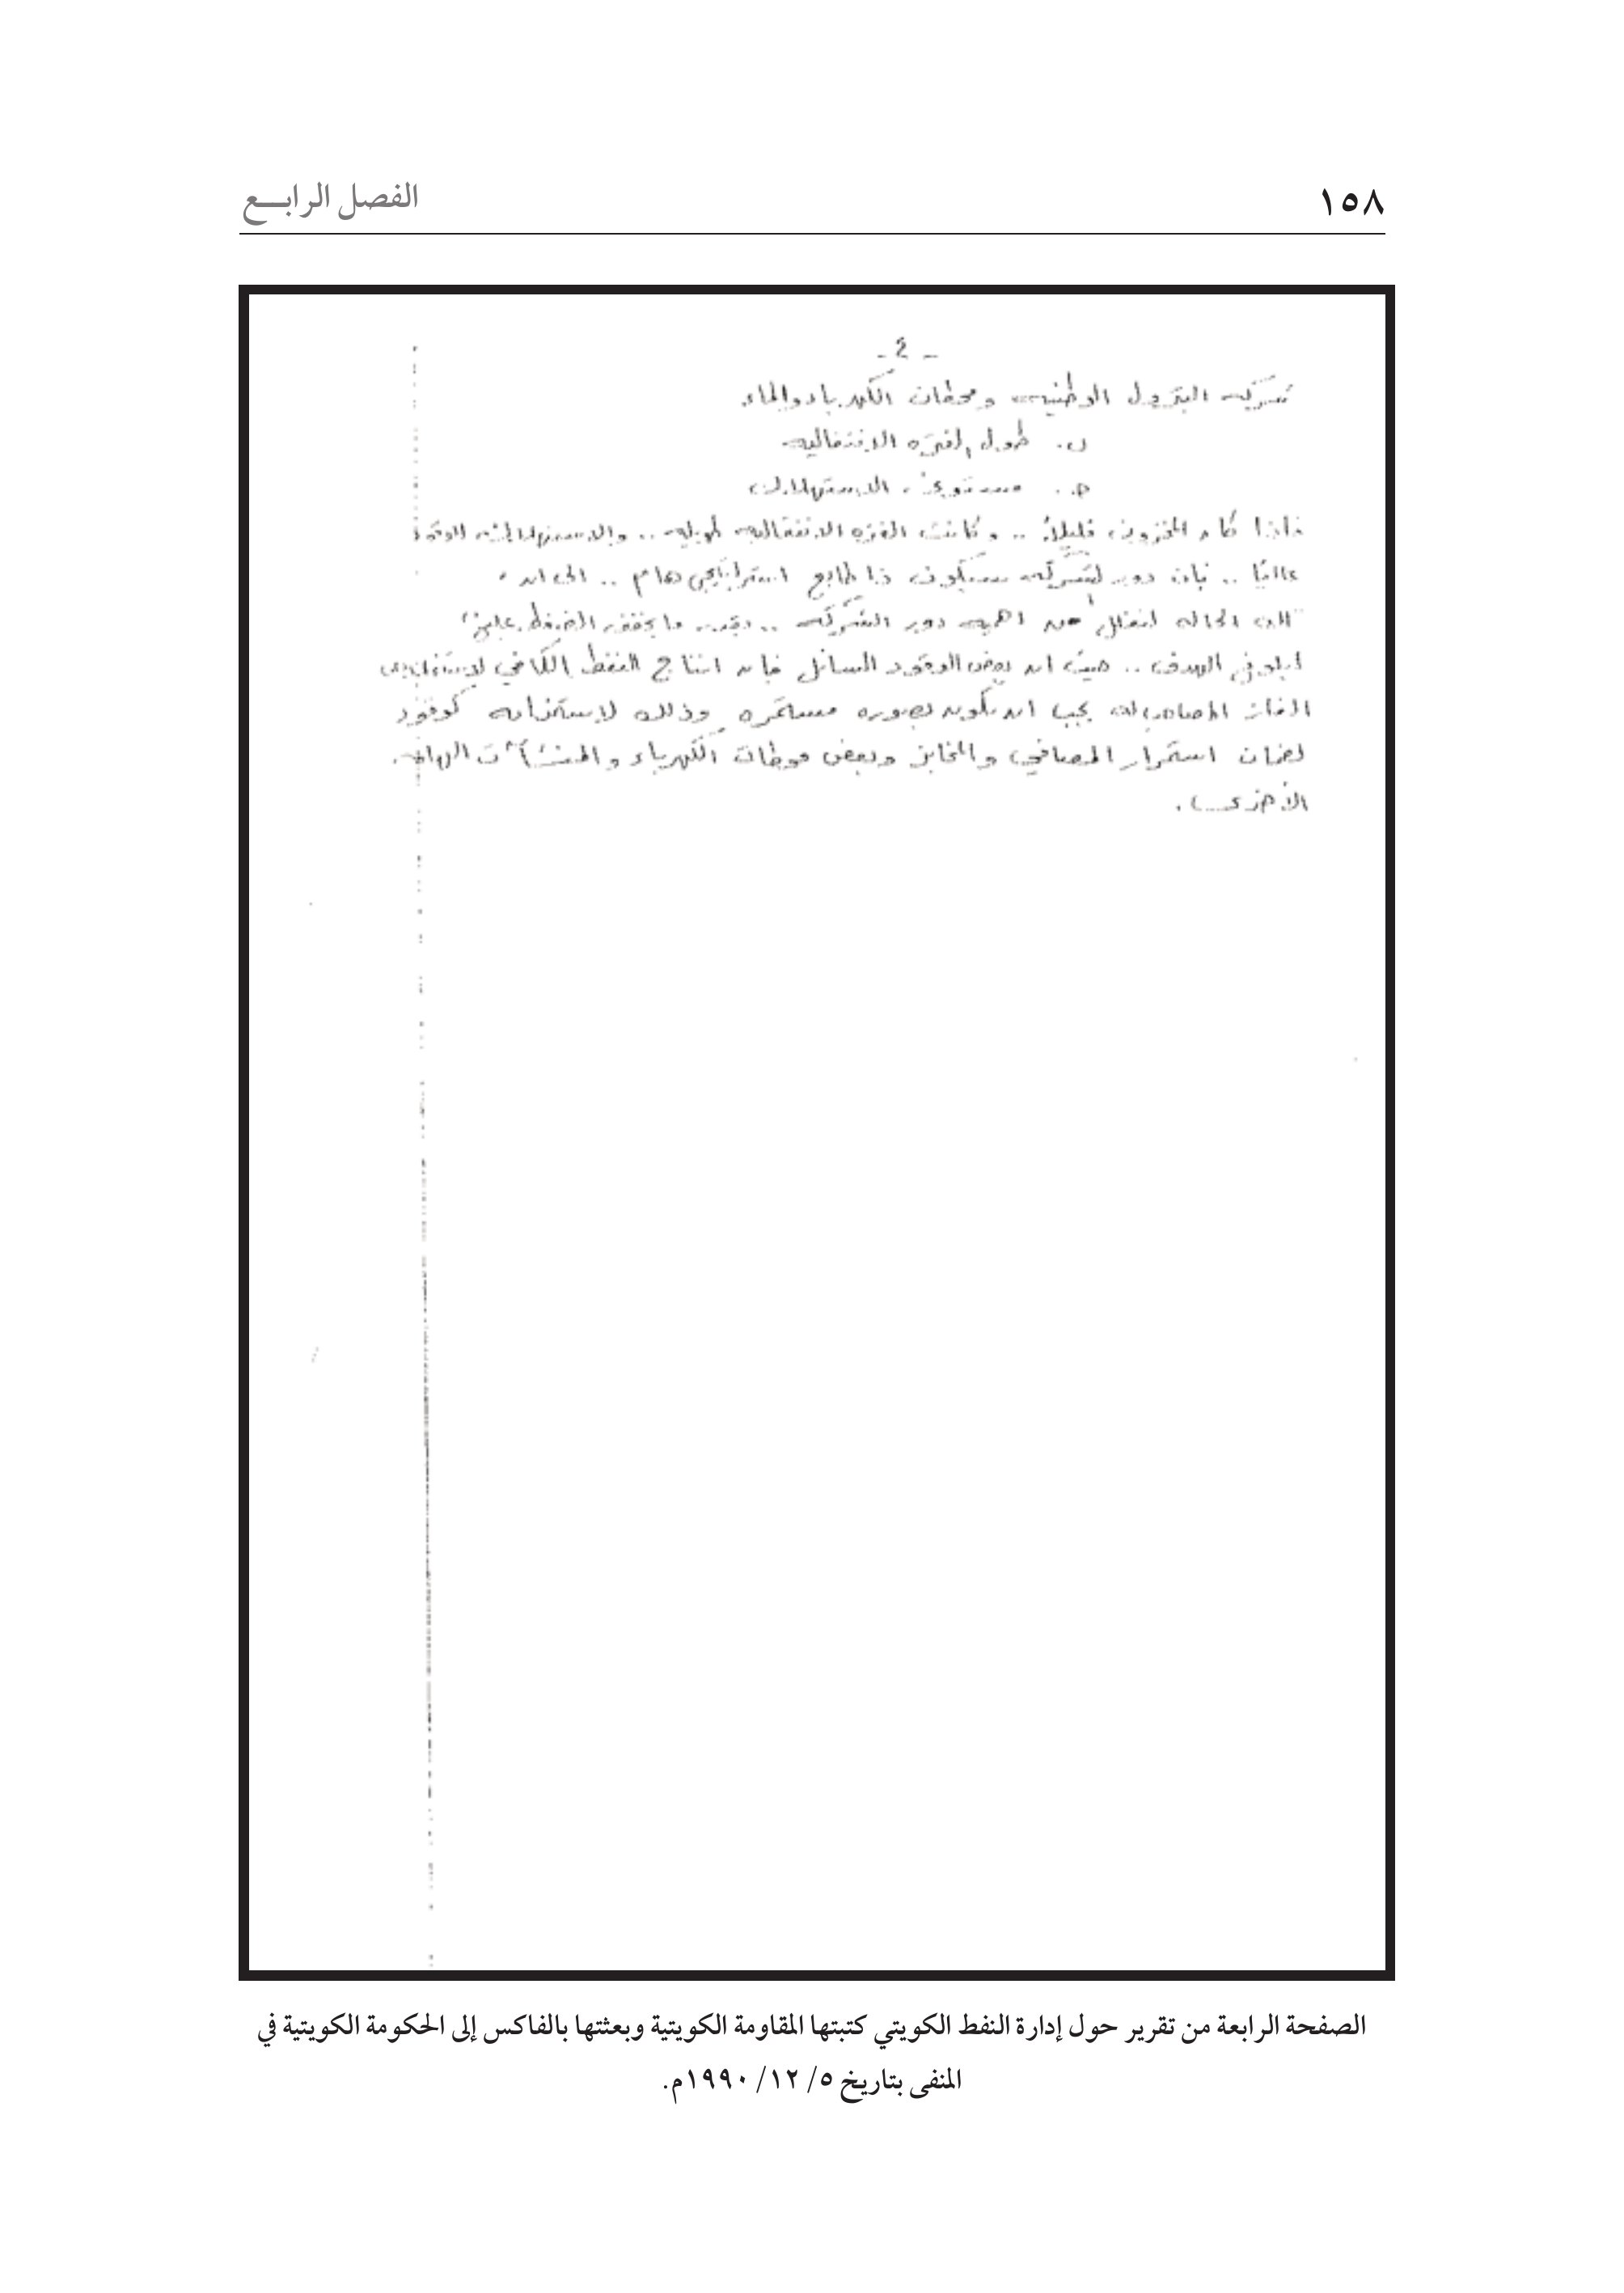 ١٥٨
الفصل الرابـــع
- ٤ -
شركه البترول الوطنيه ومحطات الكهرباء والماء
ب. طول الفتره الانتقاليه
ج. مستوى الاستهلاك
فاذا كان المخزون قليلاً .. وكانت الفتره الانتقاليه طويله .. والاستهلاك
عاليًا .. فان دور الشركه سيكون ذا طابع استراتيجي هام .. الى ان
الحاله من اهميه دور الشركه .. ما يخفف الضغط
الهدف .. حيث ان بعض الوقود السائل فان انتاج النفط الكافي
الغاز المصاحب له يجب ان يكون بصوره مستمره وذلك لاستخدامه كوقود
لضمان استمرار المصافي والمخابز وبعض محطات الكهرباء والمنشآت الهامه
الأخرى .
الصفحة الرابعة من تقرير حول إدارة النفط الكويتي كتبتها المقاومة الكويتية وبعثتها بالفاكس إلى الحكومة الكويتية في
المنفى بتاريخ ٥/ ١٢/ ١٩٩٠م.